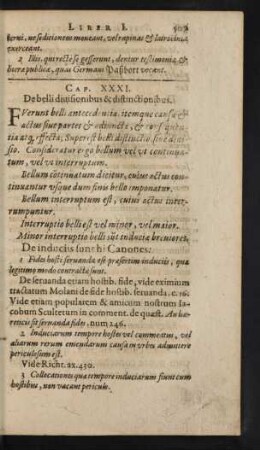 LIBER I.
turni, ne seditionem moneant, vel rapinas & latrocinia
exerceant.
2 Iis, qui recte se gesserunt, dentur testimonia &
litera publica, quas Germani Paßbort vocant.
CAP. XXXI.
De belli diuisionibus & distinctionibus.
FVerunt belli antecedentia, itemque causæ &
actus siue partes & adiuncta, &
effecta; Superest belli distinctio siue diui-
sio. Consideratur ergo bellum vel vt continuum
tum, vel vt interruptum.
Bellum cōtinuatum dicitur, cuius actus con-
tinuantur vsque dum finis bello imponatur.
Bellum interruptum est, cuius actus inter-
rumpuntur.
Interruptio belli est vel minor, vel maior.
Minor interruptio belli sūt induciæ breuiores.
De induciis sunt hi Canones:
1 Fides hosti seruanda est præsertim induciis, quæ
legitimo modo contractæ sunt.
De seruanda etiam hostib. fide, vide eximium
tractatum Molani de fide hostib. seruanda. c. 16.
Vide etiam popularem & amicum nostrum Ia-
cobum Scultetum in comment. de quæst. An hæ-
reticis sit seruanda fides, num 246.
2 Induciarum tempore hostes vel commeatus, vel
aliarum rerum emendarum causa in vrbes admittere
periculosum est.
Vide Richt. ax. 430.
3 Collocationes quæ tempore induciarum fiunt cum
hostibus, non vacant periculo.